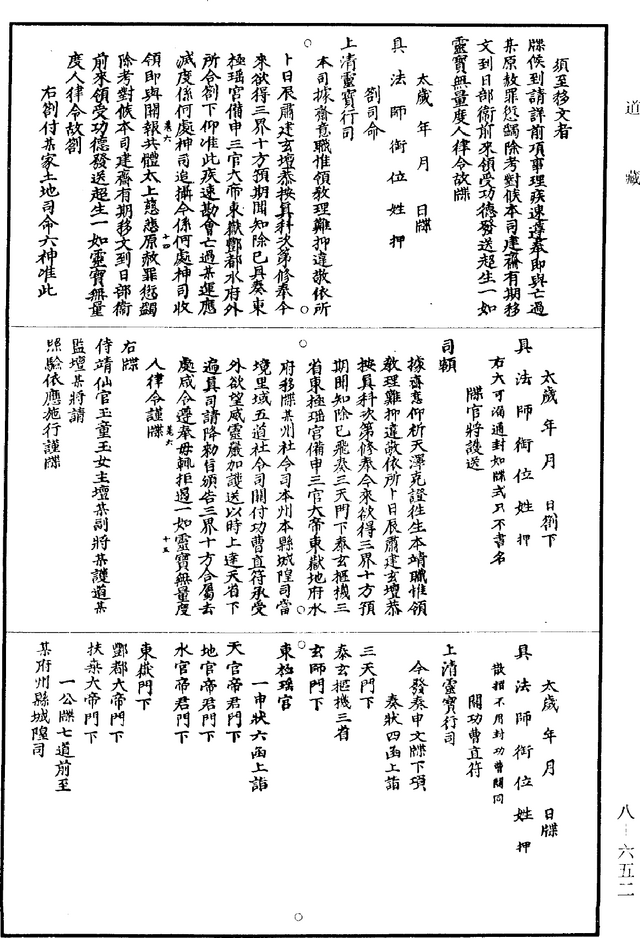 道藏
須至移文者
牒候到請詳前項事理疾速遵奉即與亡過
某原赦罪愆蠲除考對候本司建齋有期移
文到日部衞前來領受功德發送超生一如
靈寶無量度人律令故牒
太歲年月日牒
具法師銜位姓押
劄司命
上清靈寶行司
本司據齋意職惟領教理難抑違敬依所
卜日辰肅建玄壇恭按具科次第修奉今
來欲得三界十方預期聞知除已具奏東
極瑶宮備申三官大帝東嶽酆都水府外
所合劄下仰准此疾速勘會亡過某運應
滅度係何處神司追攝今係何處神司收
領即與開報共體太上慈悲原赦罪愆蠲
除考對候本司建齋有期移文到日部衞
前來領受功德發送超生一如靈寶無量
度人律令故劄
右劄付某家土地司命六神准此
太歲年月日劄下
具法師銜位姓押
右六可漏通封如牒式只不書名
牒官將設送
司額
據齋意仰祈天澤克證徃生本靖職惟領
教理難抑違敬依所卜日辰肅建玄壇恭
按具科次第修奉今來欲得三界十方預
期聞知除已飛奏三天門下泰玄摳機三
省東極瑶宮備申三官大帝東嶽地府水
府移牒某州社令司本州本縣城隍司當
境里域五道社令司關付功曹直符承受
外欲望威靈嚴加護送以時上達天省下
遍真司請降勑旨頒告三界十方合屬去
處咸令遵奉毋輒拒遏一如靈寶無量度
人律令謹牒
右牒
侍靖仙官玉童玉女主壇某副將某護道某
監壇某將請
照驗依應施行謹牒
太歲年月日牒
具法師銜位姓押
散招不用封功曹關同
關功曹直符
上清靈寶行司
今發奏申文牒下項
奏狀四函上詣
三天門下
泰玄摳機三省
玄師門下
東極瑶宮
一申狀六函上詣
天官帝君門下
地官帝君門下
水官帝君門下
東嶽門下
酆都大帝門下
扶桑大帝門下
一公牒七道前至
某府州縣城隍司
八-六五二